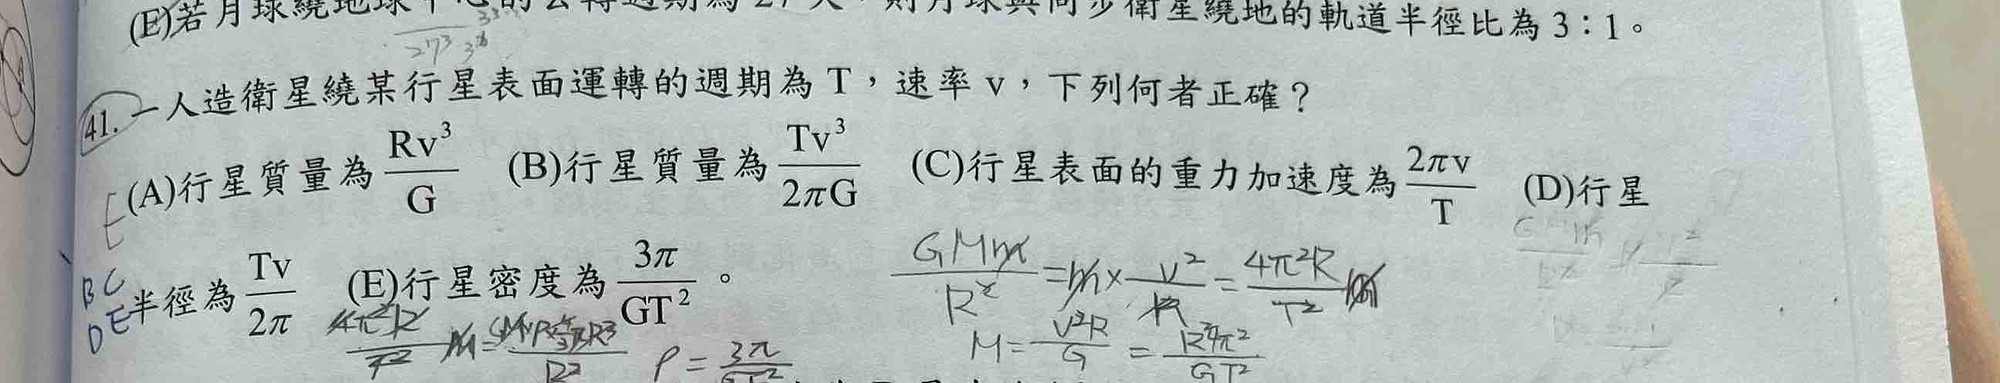 (E)若月球繞地球中心的公轉週期為 27 天,則月球與同步衛星繞地的軌道半徑比為 3:1。
41. 一人造衛星繞某行星表面運轉的週期為 T,速率 v,下列何者正確?
(A)行星質量為 Rv³/G (B)行星質量為 Tv³/2πG (C)行星表面的重力加速度為 2πv/T (D)行星
半徑為 Tv/2π (E)行星密度為 3π/GT²。
E
BC
DE
GMm/R² = m × v²/R = 4π²R/T² m
M = v²R/G = R³4π²/GT²
ρ = 3π/GT²